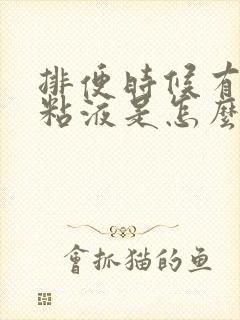 排便時候有
粘液是怎麼
會抓猫的鱼